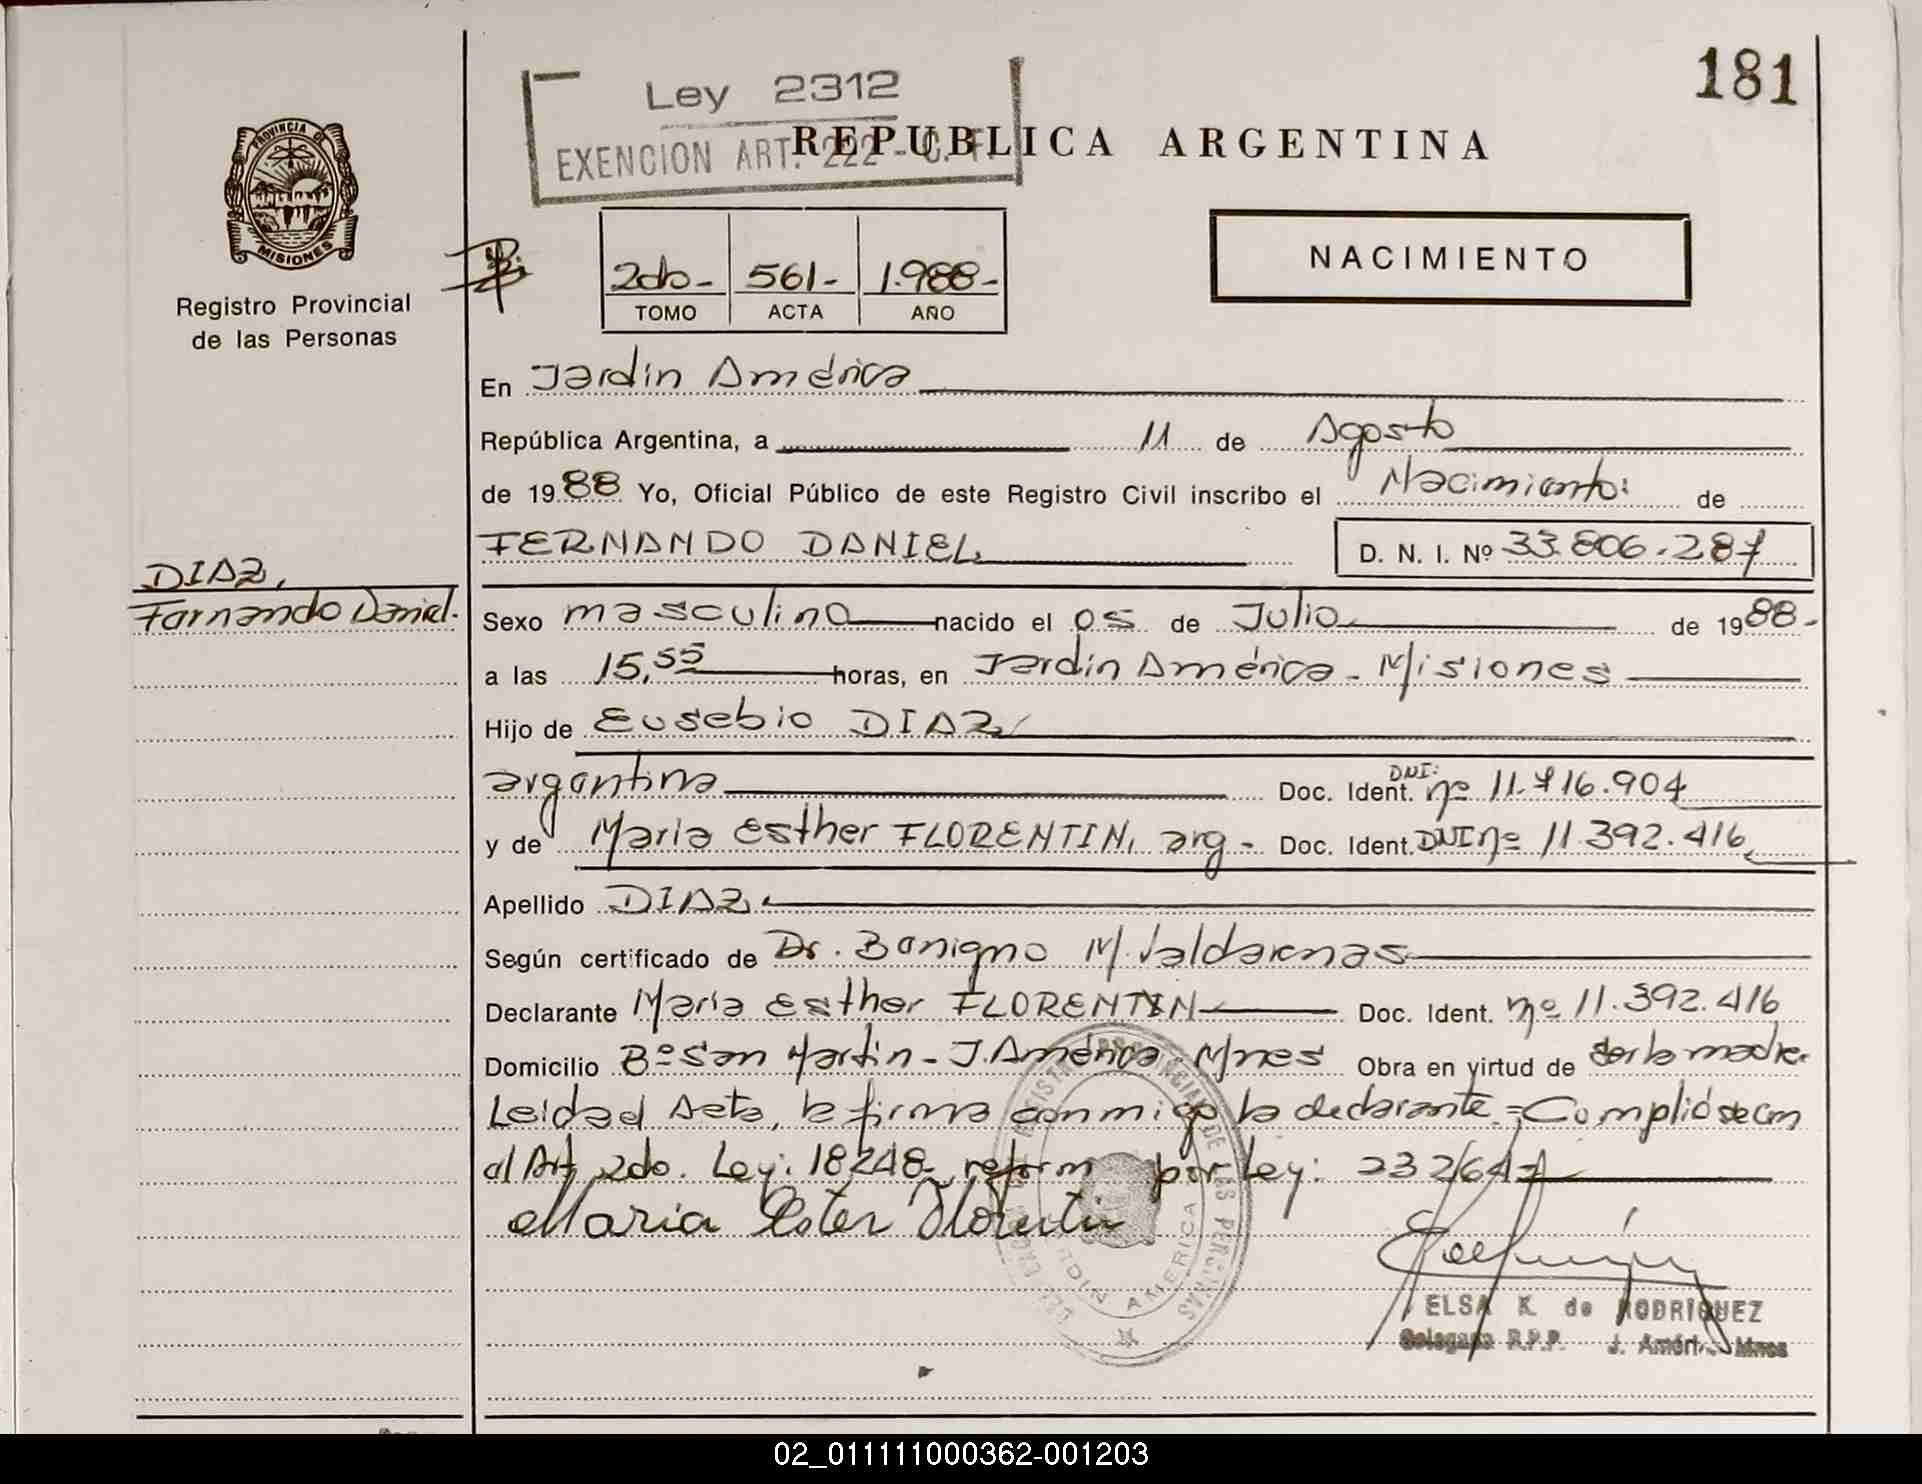 181
Ley 2312
EXENCION ART. 222 - C. F.
REPUBLICA ARGENTINA
PROVINCIA DE
MISIONES
Registro Provincial
de las Personas
2do- 561- 1.988-
TOMO ACTA AÑO
NACIMIENTO
En Jardin América
República Argentina, a 11 de Agosto
de 1988 Yo, Oficial Público de este Registro Civil inscribo el Nacimiento: de
FERNANDO DANIEL. D. N. I. Nº 33.806.287
DIAZ,
Fernando Daniel.
Sexo masculino nacido el 05 de Julio de 1988-
a las 15,55 horas, en Jardin América - Misiones
Hijo de Eusebio DIAZ
argentina Doc. Ident. DNI: nº 11.716.904
y de Maria Esther FLORENTIN, arg - Doc. Ident. DNI nº 11.392.416
Apellido DIAZ.
Según certificado de Dr. Benigno M. Valdarenas
Declarante Maria Esther FLORENTIN Doc. Ident. nº 11.392.416
Domicilio Bº San Martin - J. América - Mnes Obra en virtud de ser la madre.
Leida el Acta, la firma conmigo la declarante = Cumplióse con
el Art. 2do. Ley: 18248, reform por Ley: 23264
Maria Ester Florentin
AMERICA
ELSA K. de RODRIGUEZ
Delegada R.P.P. J. Améri Mnes
02_011111000362-001203